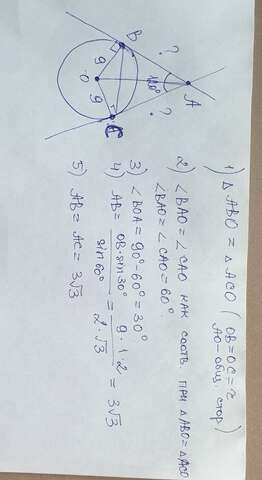 B
?
9
O
120°
A
9
?
C
1) △ABO = △ACO (OB=OC=r
AO-общ. стор)
2) ∠BAO=∠CAO как соотв. при △ABO=△ACO
∠BAO=∠CAO=60°.
3) ∠BOA=90°-60°=30°
4) AB= OB·sin30° / sin60° = 9·1·2 / 2·√3 = 3√3
5) AB=AC=3√3